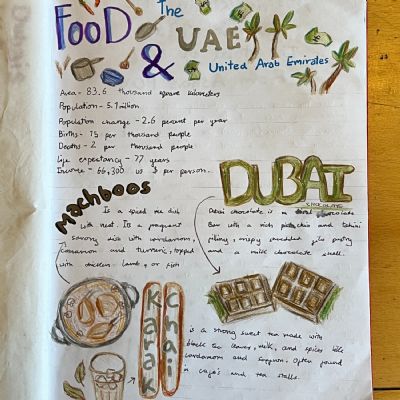 FooD
The
UAE
&
United Arab Emirates
Area - 83.6 thousand square kilometers
Population - 5.1 million
Population change - 2.6 percent per year
Births - 15 per thousand people
Deaths - 2 per thousand people
Life expectancy - 77 years
Income - 66,300 us $ per person.
machboos
Is a spiced rice dish
with meat. Is a fragrant
savory dish with cardamom,
cinnamon and tumeric, topped
with chicken, lamb, or fish
DUBAI
CHOCOLATE
Dubai chocolate is a chocolate
Bar with a rich pistachio and tahini
filling, crispy shredded filo pastry
and a milk chocolate shell.
Karak
Chai
is a strong sweet tea made with
black tea leaves, milk, and spices like
cardamom and saffron. Often found
in cafe's and tea stalls.